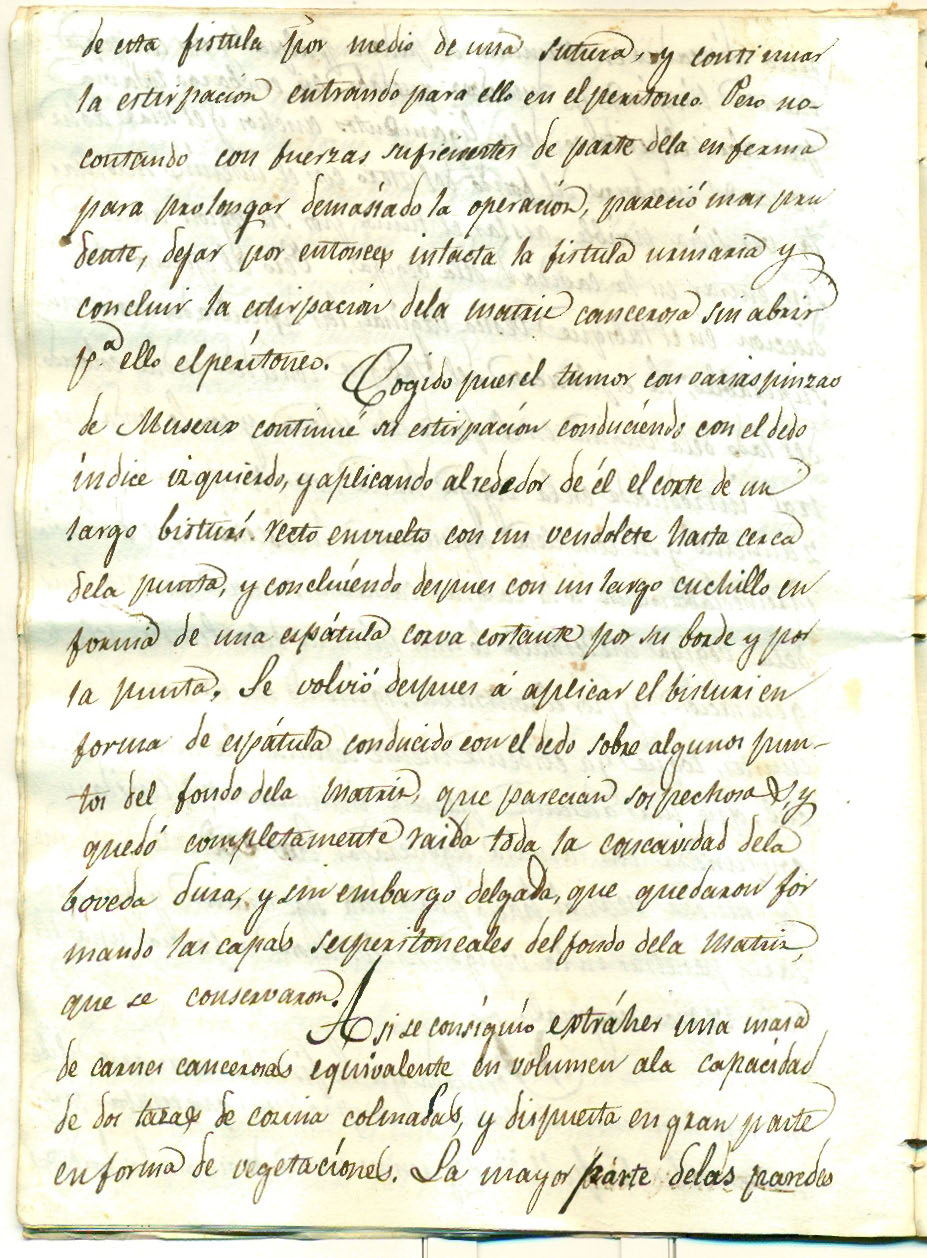 de esta fistula por medio de una sutura, y continuar
la estirpación entrando para ello en el peritoneo. Pero no-
contando con fuerzas suficientes de parte dela enferma
para prolongar demásiado la operación, pareció mas pru
dente, dejar por entonces intácta la fistula urinaria y
concluir la estirpación dela matriz cancerosa sin abrir
p.ª ello el peritoneo. Cogido pues el tumor con varias pinzas
de Museux continué su estirpación conduciéndo con el dedo
índice izquierdo, y aplicando alrededor de él el corte de un
largo bisturí recto envuelto con un vendolete hasta cerca
dela punta, y concluiendo despues con un largo cuchillo en
forma de una espátula corva cortante por su borde y por
la punta. Se volvió despues á aplicar el bisturi en
forma de espátula conducido con el dedo sobre algunos pun-
tos del fondo dela matriz, que parecian sospechosos, y
quedó completamente raida toda la concavidad dela
boveda dura, y sin embargo delgada, que quedaron for
mando las capas seperitoneales del fondo dela matriz,
que se conservaron.
Asi se consiguió extráher una masa
de carnes cancerosas equivalente en volumen ala capacidad
de dos tazas de cocina colmadas, y dispuesta en gran parte
en forma de vegetaciones. La mayor párte delas paredes